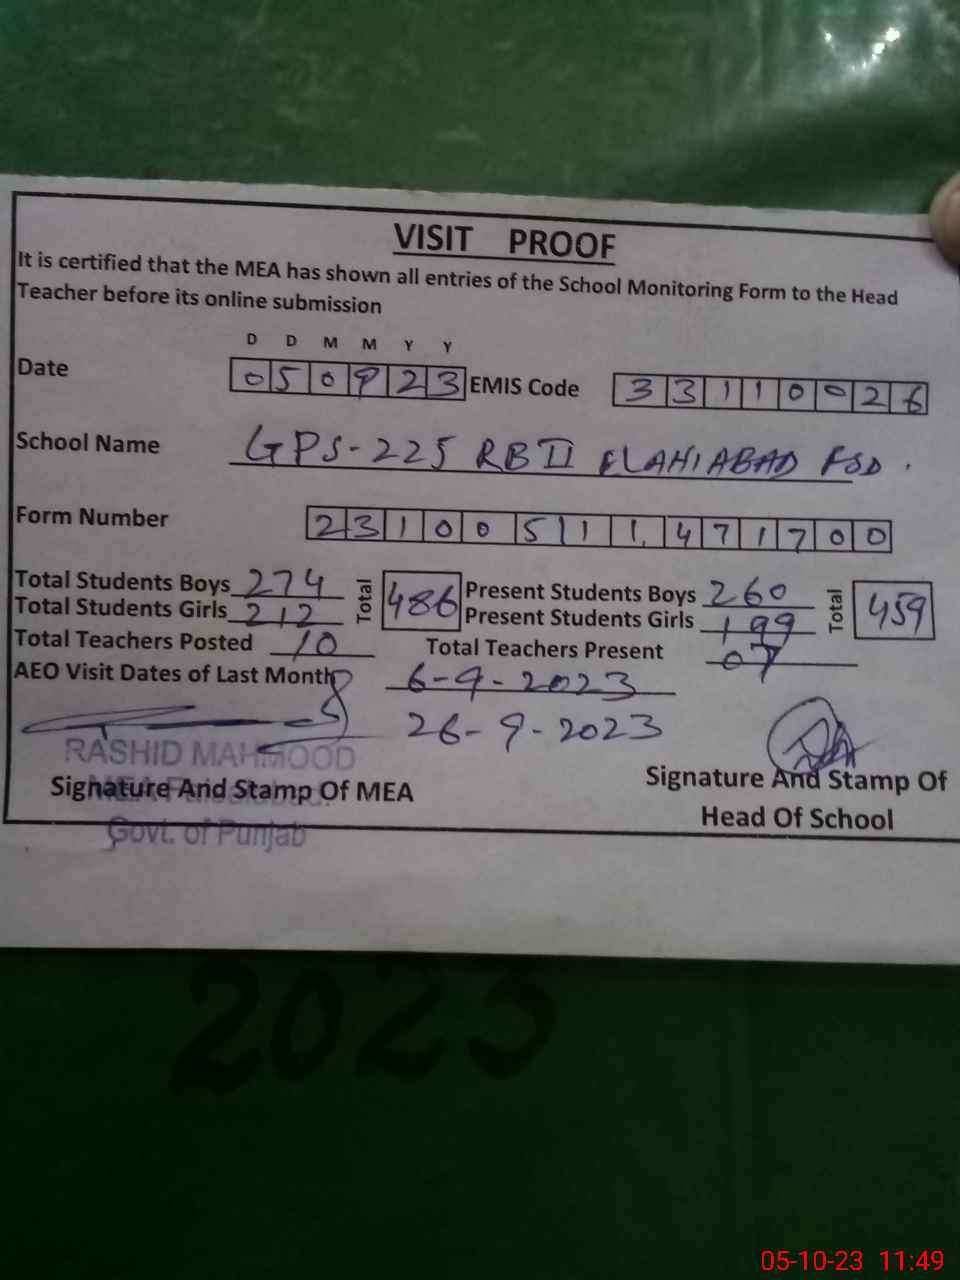 VISIT PROOF
It is certified that the MEA has shown all entries of the School Monitoring Form to the Head
Teacher before its online submission
D D M M Y Y
Date 050923 EMIS Code 33110026
School Name GPS-225 RB II ELAHIABAD FSD.
Form Number 231005111471700
Total Students Boys 274 Total 486 Present Students Boys 260 Total 459
Total Students Girls 212 Present Students Girls 199
Total Teachers Posted 10 Total Teachers Present 07
AEO Visit Dates of Last Month 6-9-2023
26-9-2023
RASHID MAHMOOD
Signature And Stamp Of MEA
Signature And Stamp Of
Head Of School
Govt. of Punjab
2023
05-10-23 11:49